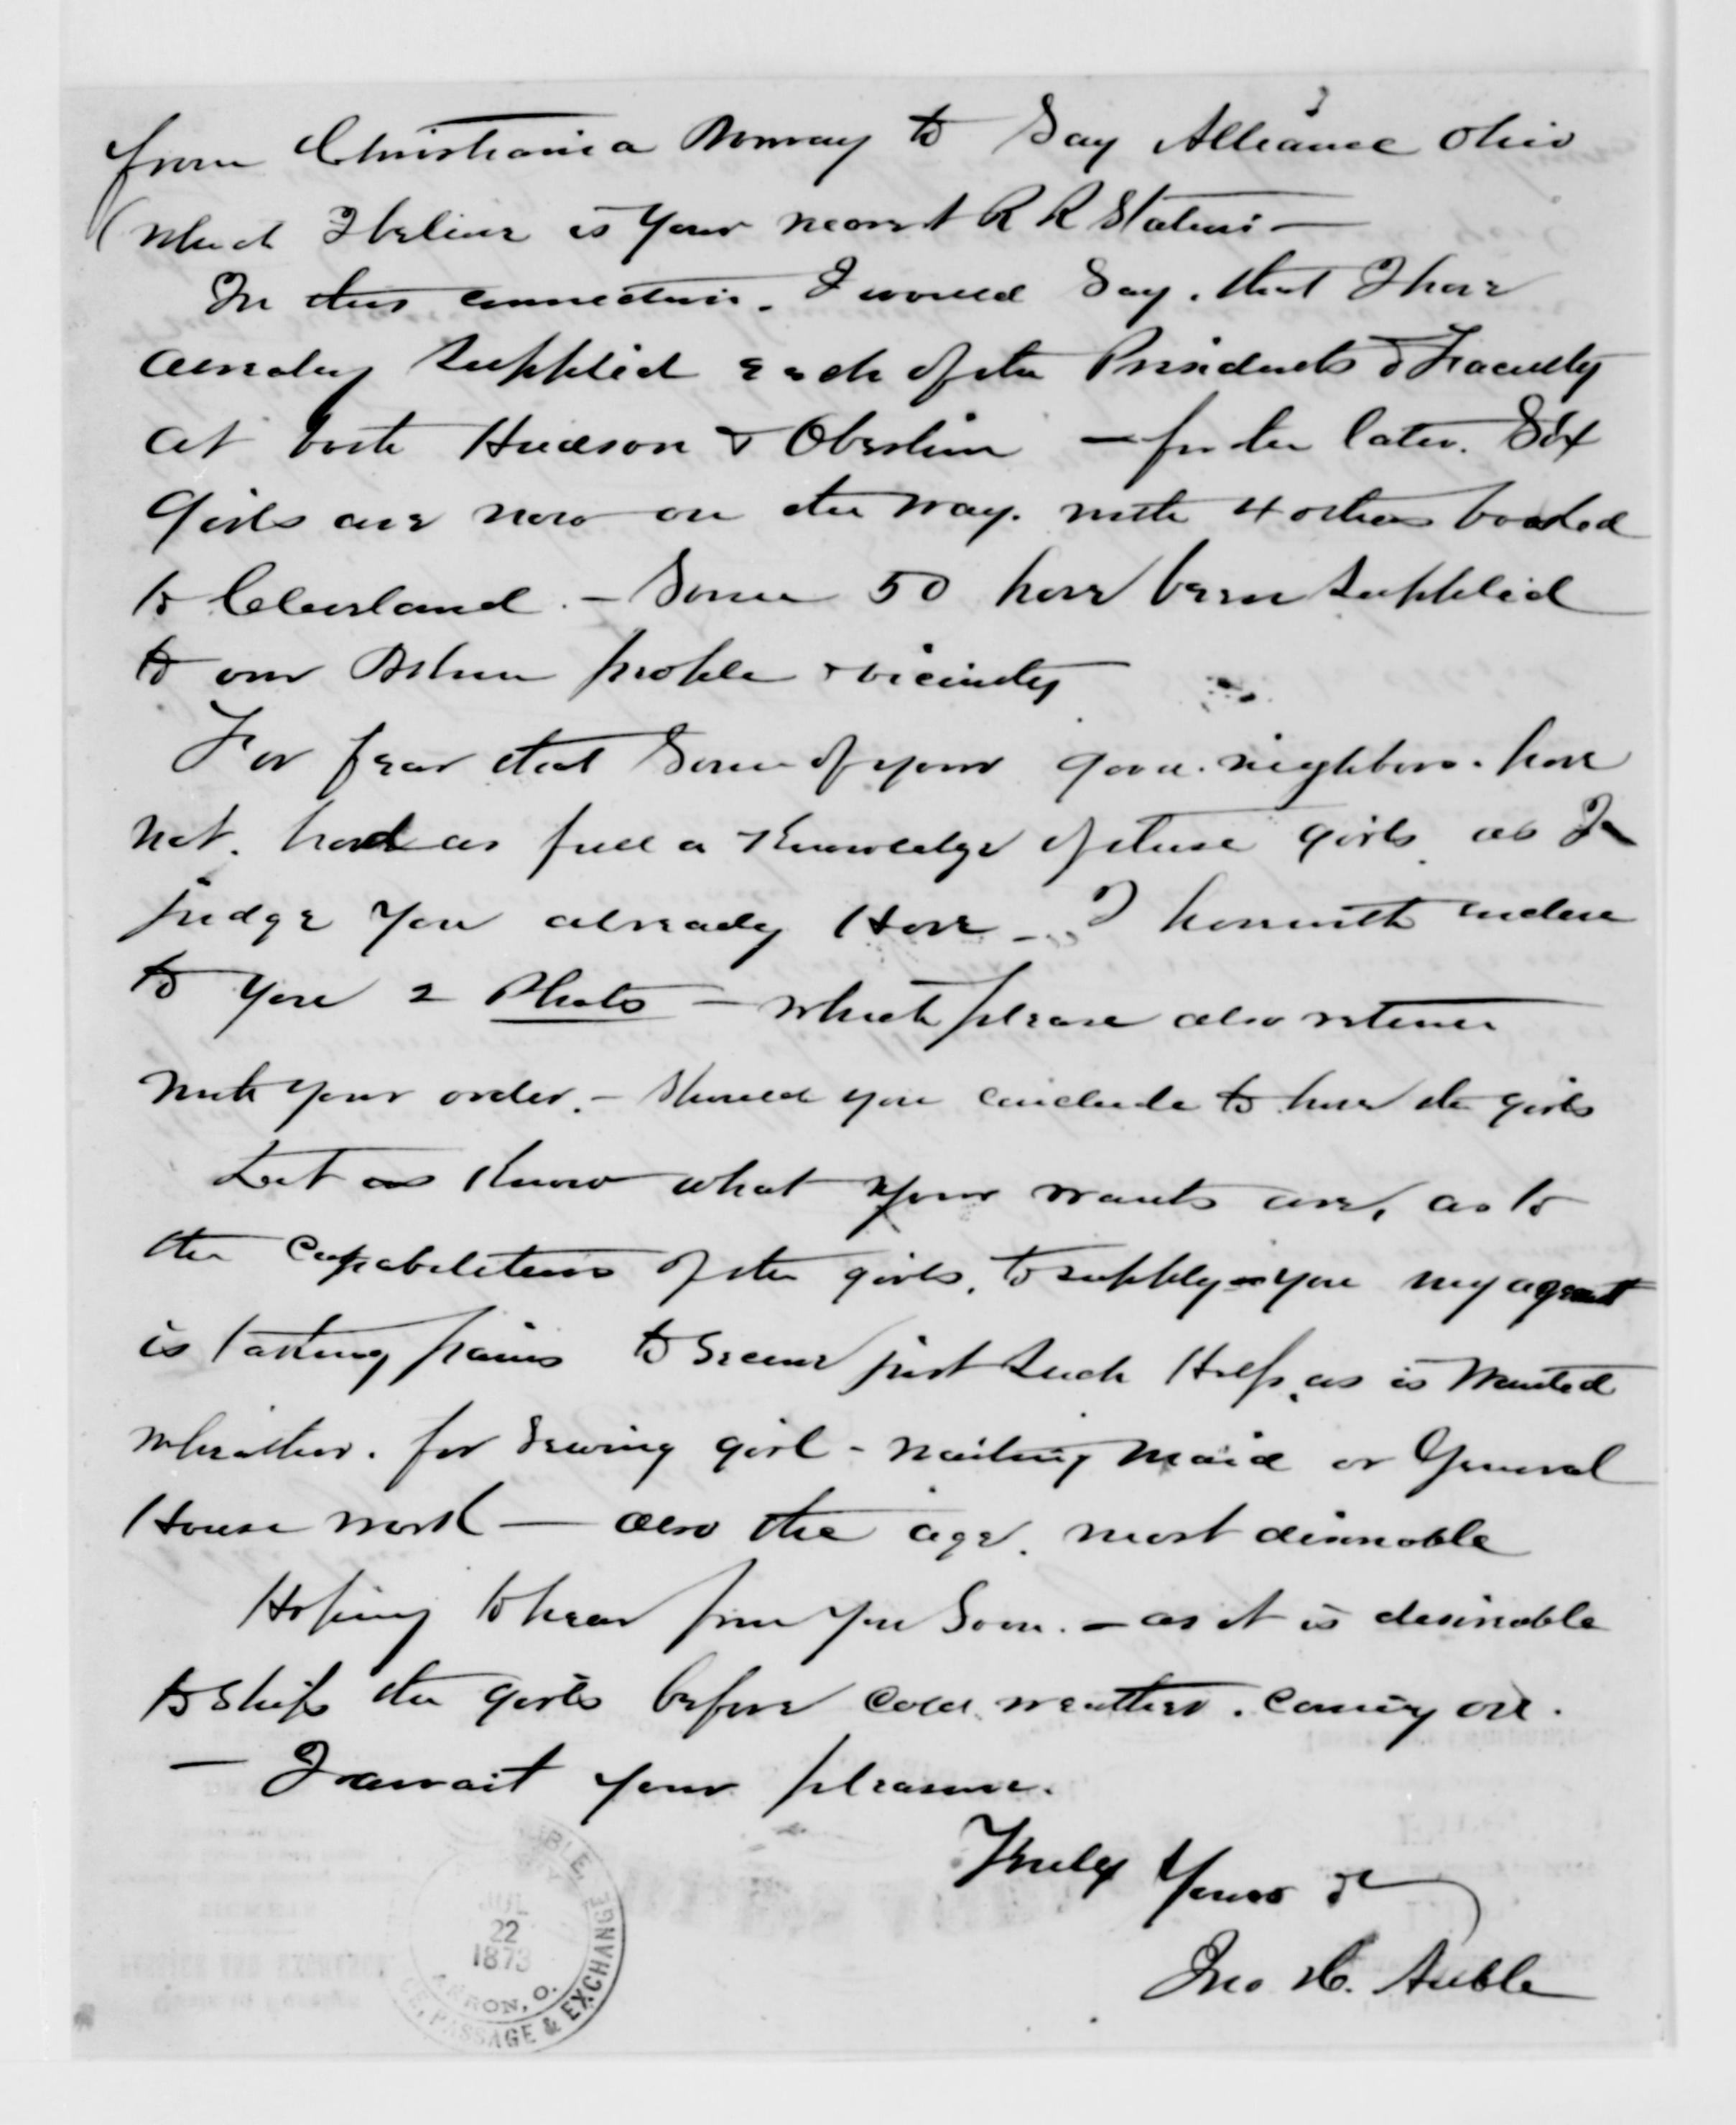 from Christiania Norway to Say Alliance Ohio
(which I believe is your nearest R R Station -
In this connection. I would Say. that I have
already supplied each of the Presidents & Faculty
at both Hudson & Oberlin - for the later. Six
Girls are now on the way. with 4 others booked
to Cleveland. - Some 50 have been supplied
to our people & vicinity
For fear that Some of your good neighbors. have
not. had as full a Knowledge of these girls as I
judge you already Have - I herewith enclose
to you 2 Photos - which please also return
with your order. - Should you conclude to have the girls
Let us Know what your wants are, as to
the Capabilities of the girls. to supply you my agent
is taking pains to Secure just such Help as is Wanted
Wheather. for Sewing girl - waiting maid or General
House work - also the age. most desirable
Hoping to hear from you Soon. - as it is desirable
to ship the girls before cold weather. coming on.
- I await your pleasure.
Truly Yours &
Jno H. Auble
JUL
22
1873
AKRON, O.
PASSAGE & EXCHANGE